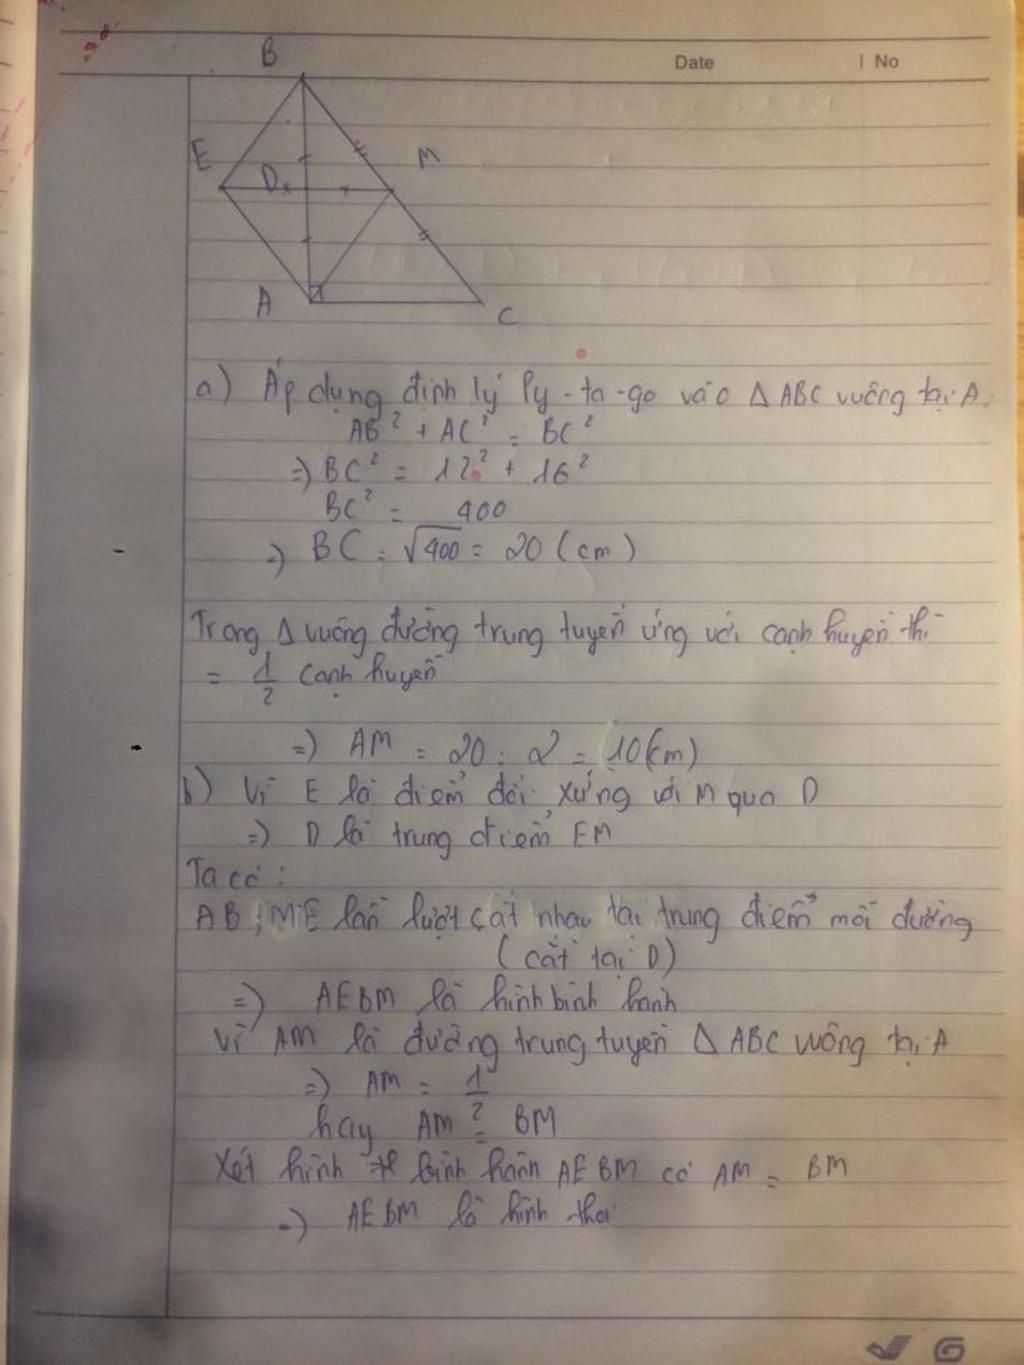 B
Date | No
E
D
M
A
C
a) Áp dụng định lý Py-ta-go vào Δ ABC vuông tại A.
AB² + AC² = BC²
=) BC² = 12² + 16²
BC² = 400
=) BC = √400 = 20 (cm)
Trong Δ vuông đường trung tuyến ứng với cạnh huyền thì
= 1/2 cạnh huyền
=) AM = 20 : 2 = 10(cm)
b) Vì E là điểm đối xứng với M qua D
=) D là trung điểm EM
Ta có :
AB ; ME lần lượt cắt nhau tại trung điểm mỗi đường
( cắt tại D)
=) AEBM là hình bình hành
Vì AM là đường trung tuyến Δ ABC vuông tại A
=) AM = 1/2
hay AM = BM
Xét hình bình hành AEBM có AM = BM
=) AEBM là hình thoi